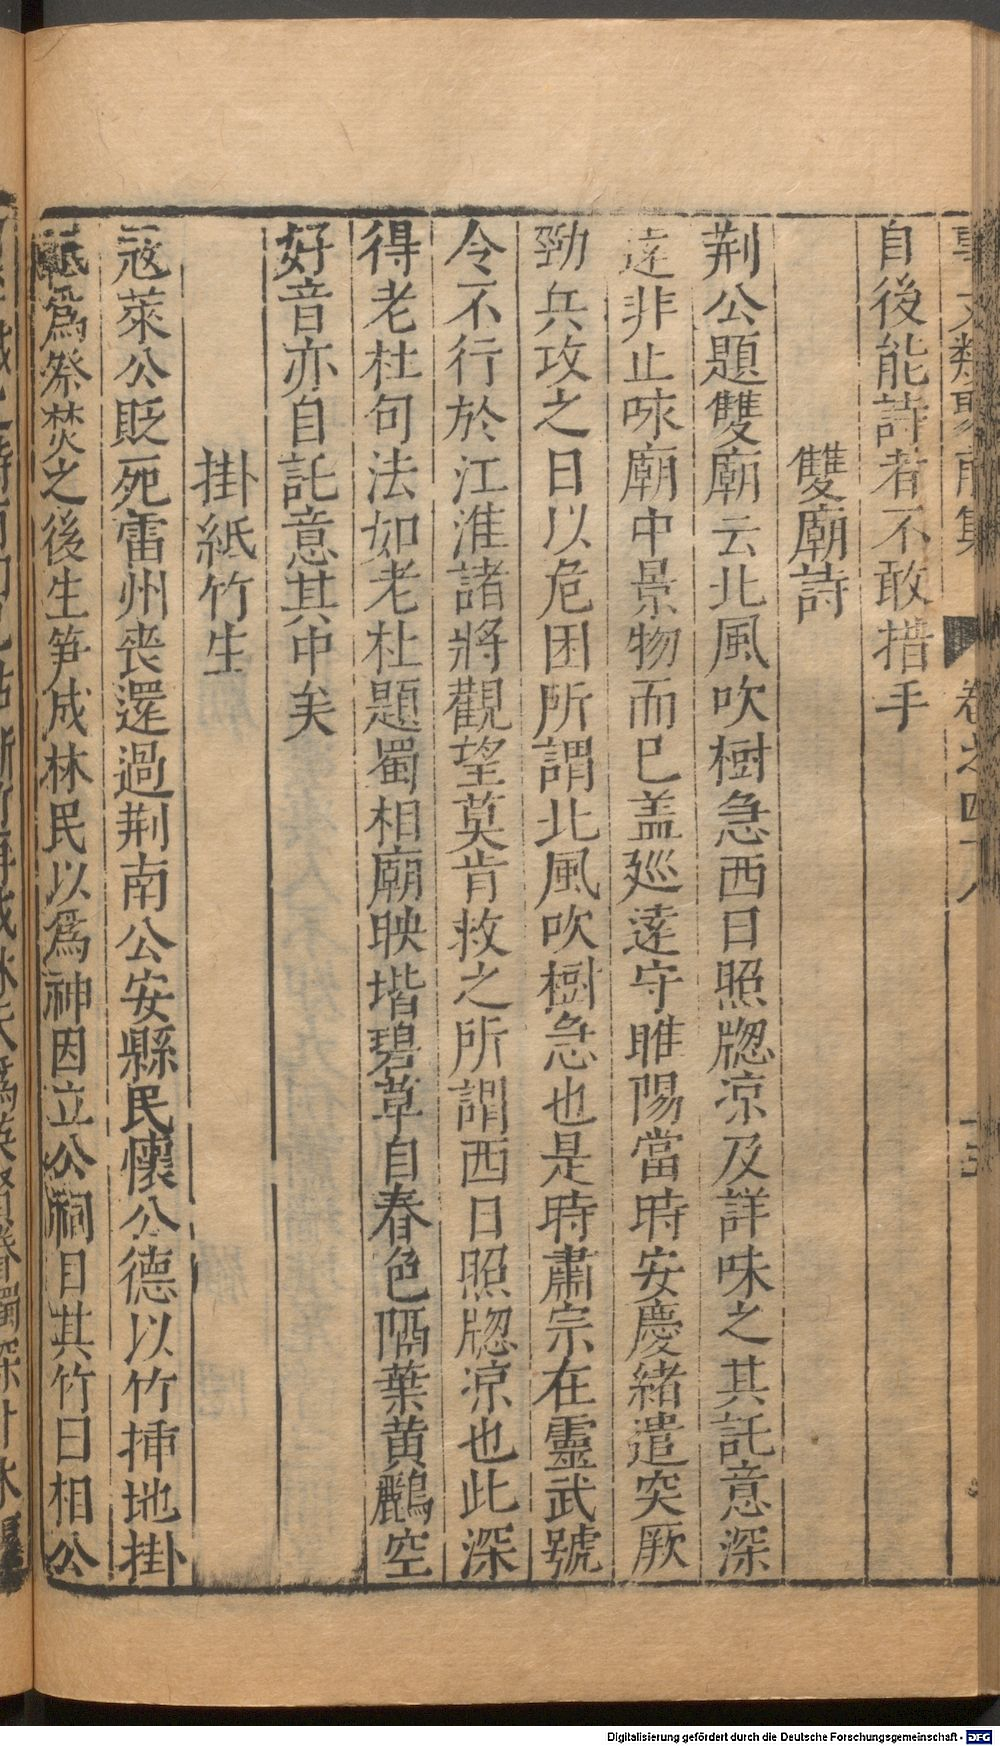 事文類聚前集 卷之四十八 十三
自後能詩者不敢措手
雙廟詩
荆公題雙廟云北風吹樹急西日照牕凉及詳味之其託意深
逺非止味廟中景物而巳盖廵逺守睢陽當時安慶緒遣突厥
勁兵攻之日以危困所謂北風吹樹急也是時肅宗在靈武號
令不行於江淮諸將觀望莫肯救之所謂西日照牕凉也此深
得老杜句法如老杜題蜀相廟映堦碧草自春色隔葉黄鸝空
好音亦自託意其中矣
掛紙竹生
寇萊公貶死雷州丧還過荆南公安縣民懷公德以竹揷地掛
紙爲祭焚之後生笋成林民以爲神因立公祠目其竹曰相公
Digitalisierung gefördert durch die Deutsche Forschungsgemeinschaft - DFG